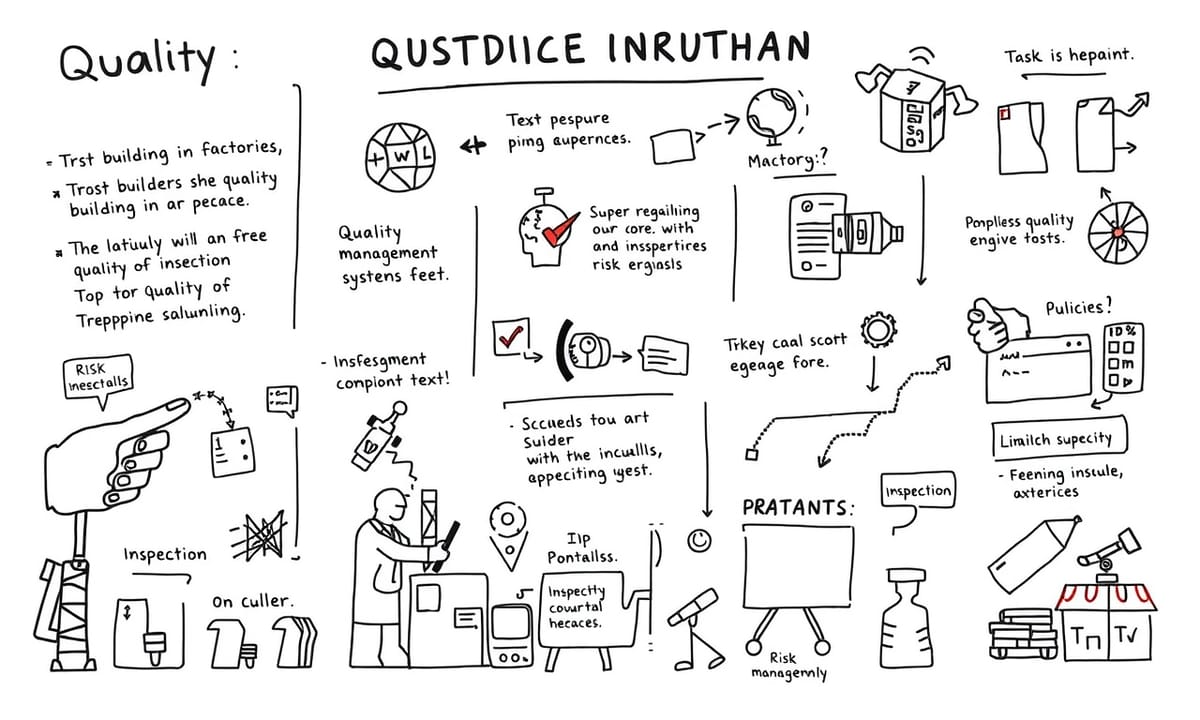 Quality:
QUSTDIICE INRUTHAN
Task is hepaint.
= Trst building in factories,
* Trost builders she quality
building in ar pecace.
* The latuuly will an free
quality of insection
Top tor quality of
Trepppine salwnling.
+ W L
Text pespure
ping aupernces.
Mactory:?
Quality
management
systens feet.
Super regailiing
our core. with
and insspertires
risk ergiasls
Ponplless quality
engive tosts.
- Insfesgment
conpiont text!
Trkey caal scort
egeage fore.
Pulicies?
10%
m
RISK
inesctalls
1
- Sccueds tou art
Suider
with the incuulls,
appeciting yest.
Limilch supecity
- Feening inscule,
axterices
Inspection
On culler.
Ilp
Pontallss.
Inspectty
cowrtal
hecaces.
PRATANTS:
Risk
managernly
Inspection